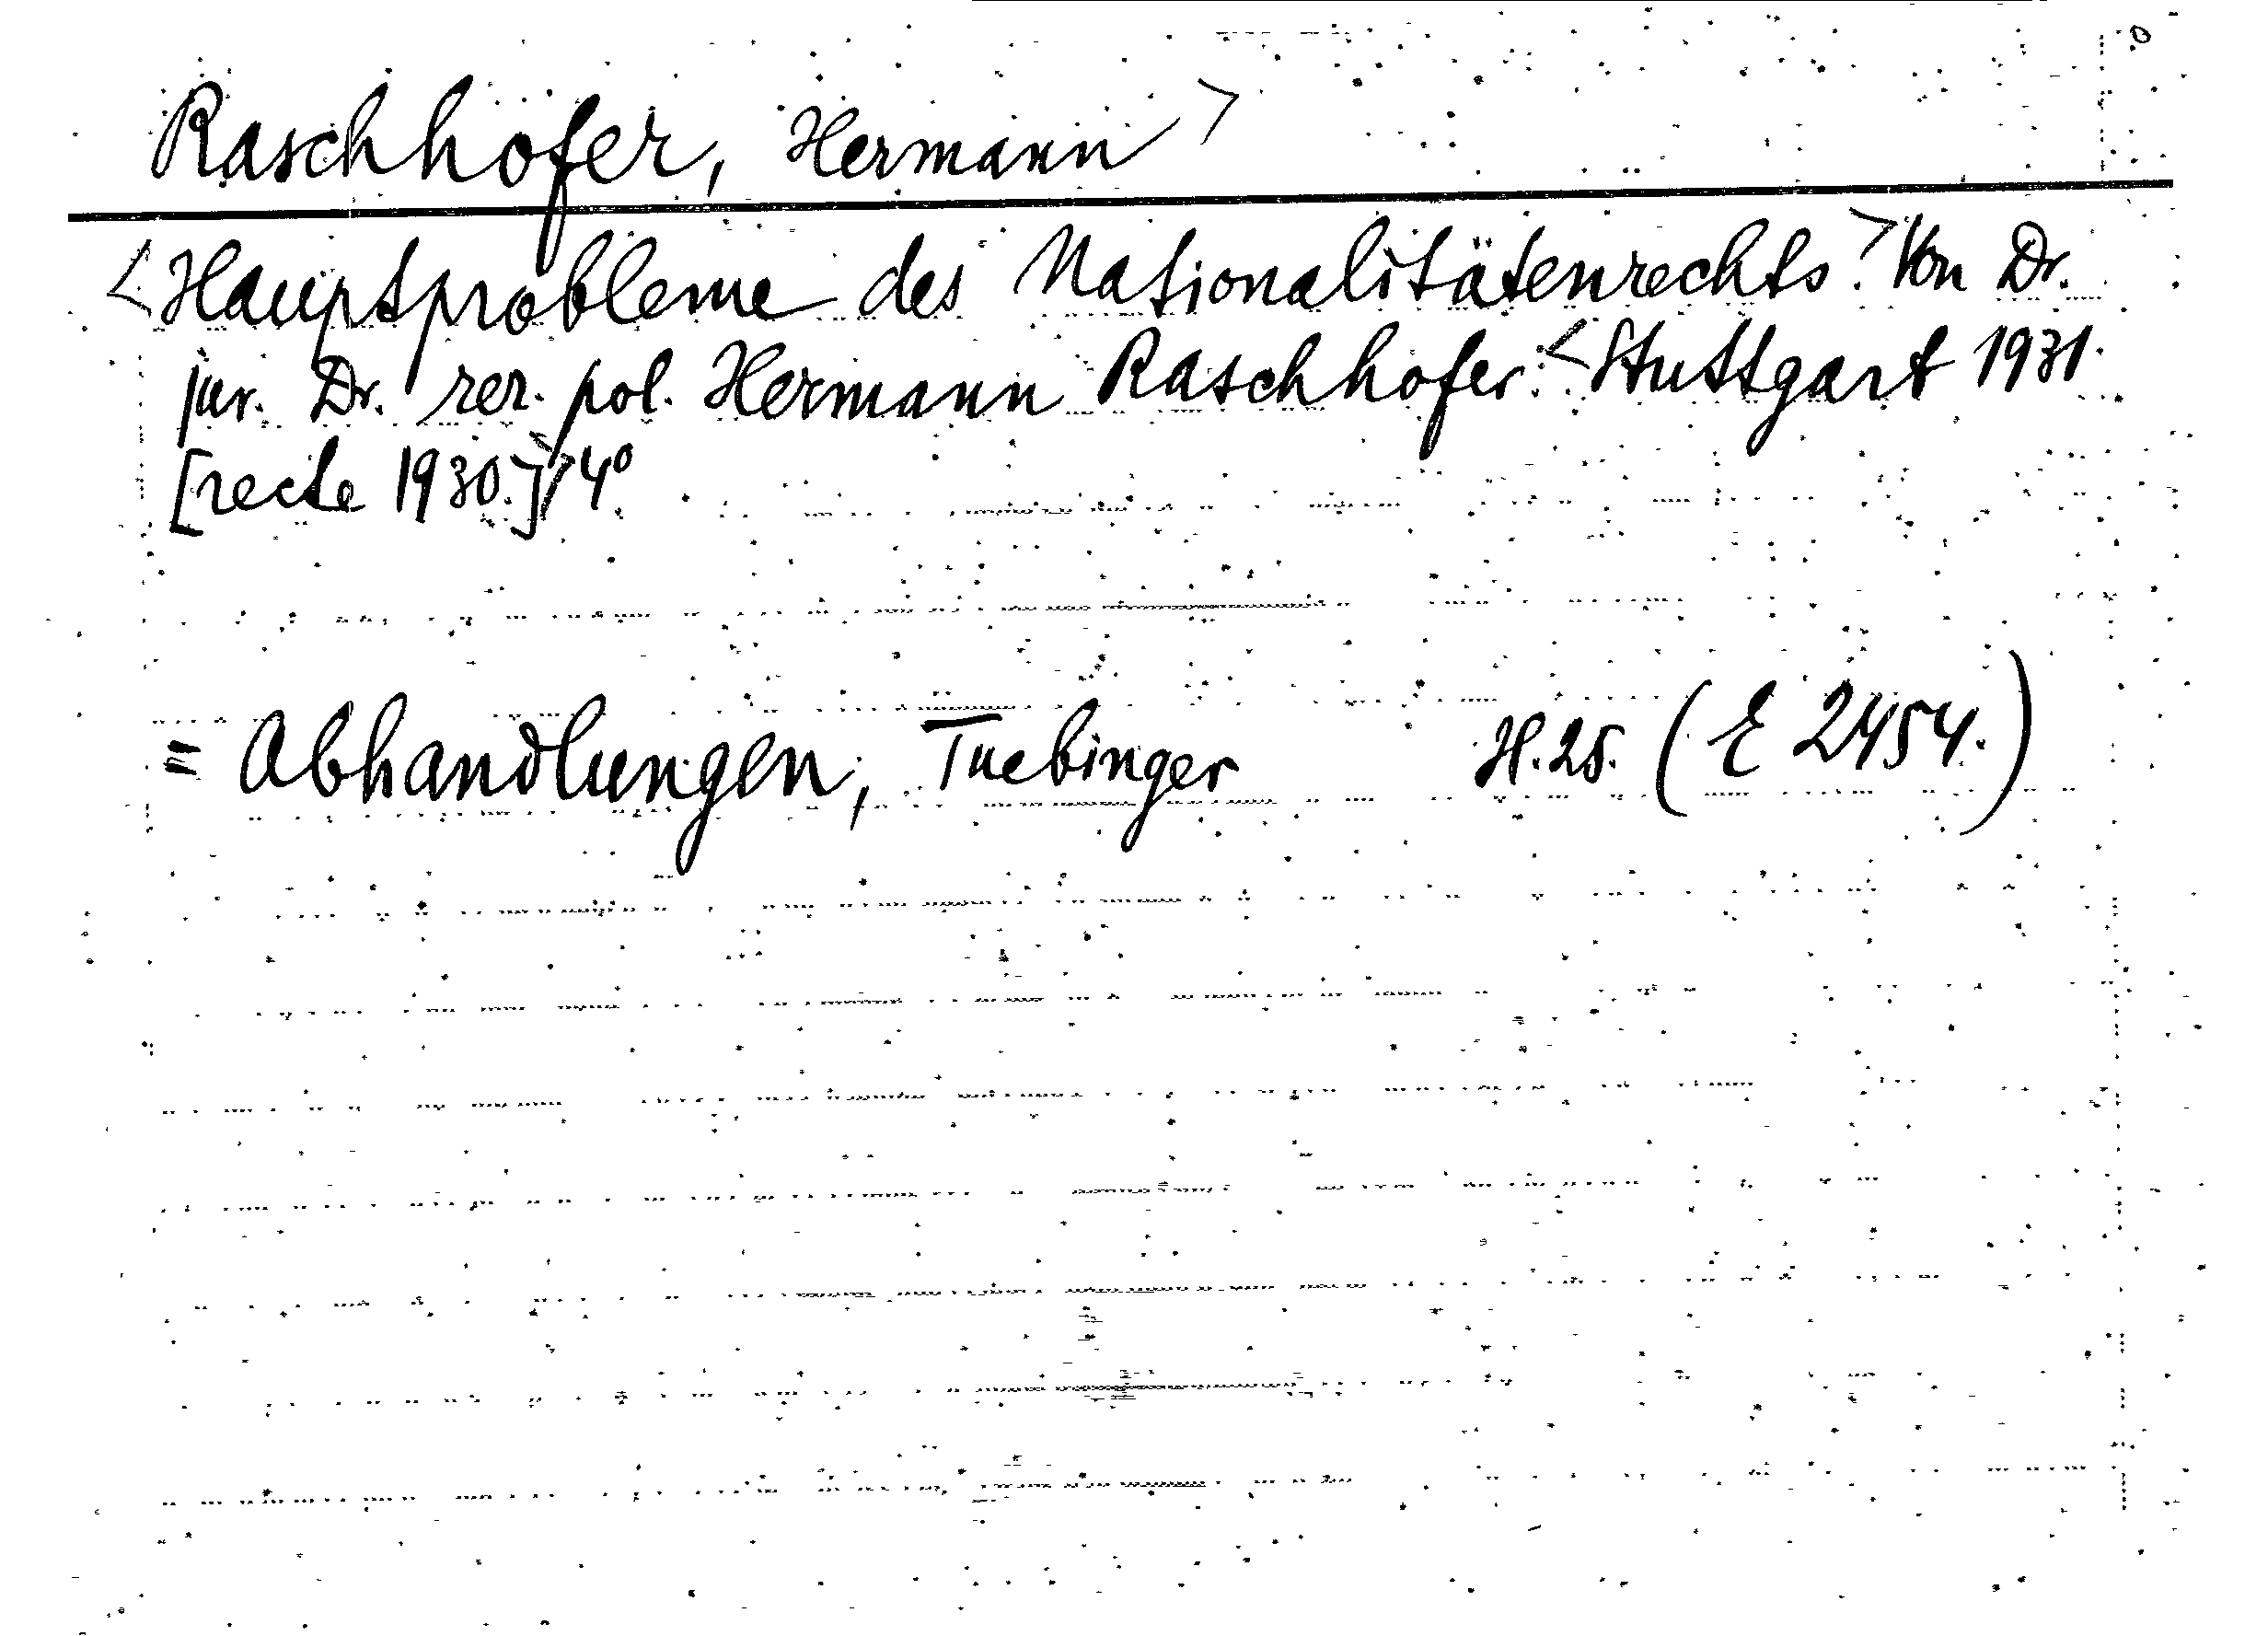 Raschhofer, Hermann >
<Hauptprobleme des Nationalitätenrechts.> Von Dr.
jur. Dr. rer. pol. Hermann Raschhofer. <Stuttgart 1931.
[recte 1930.]> 4°
= Abhandlungen, Tuebinger H. 25. (E 2454.)